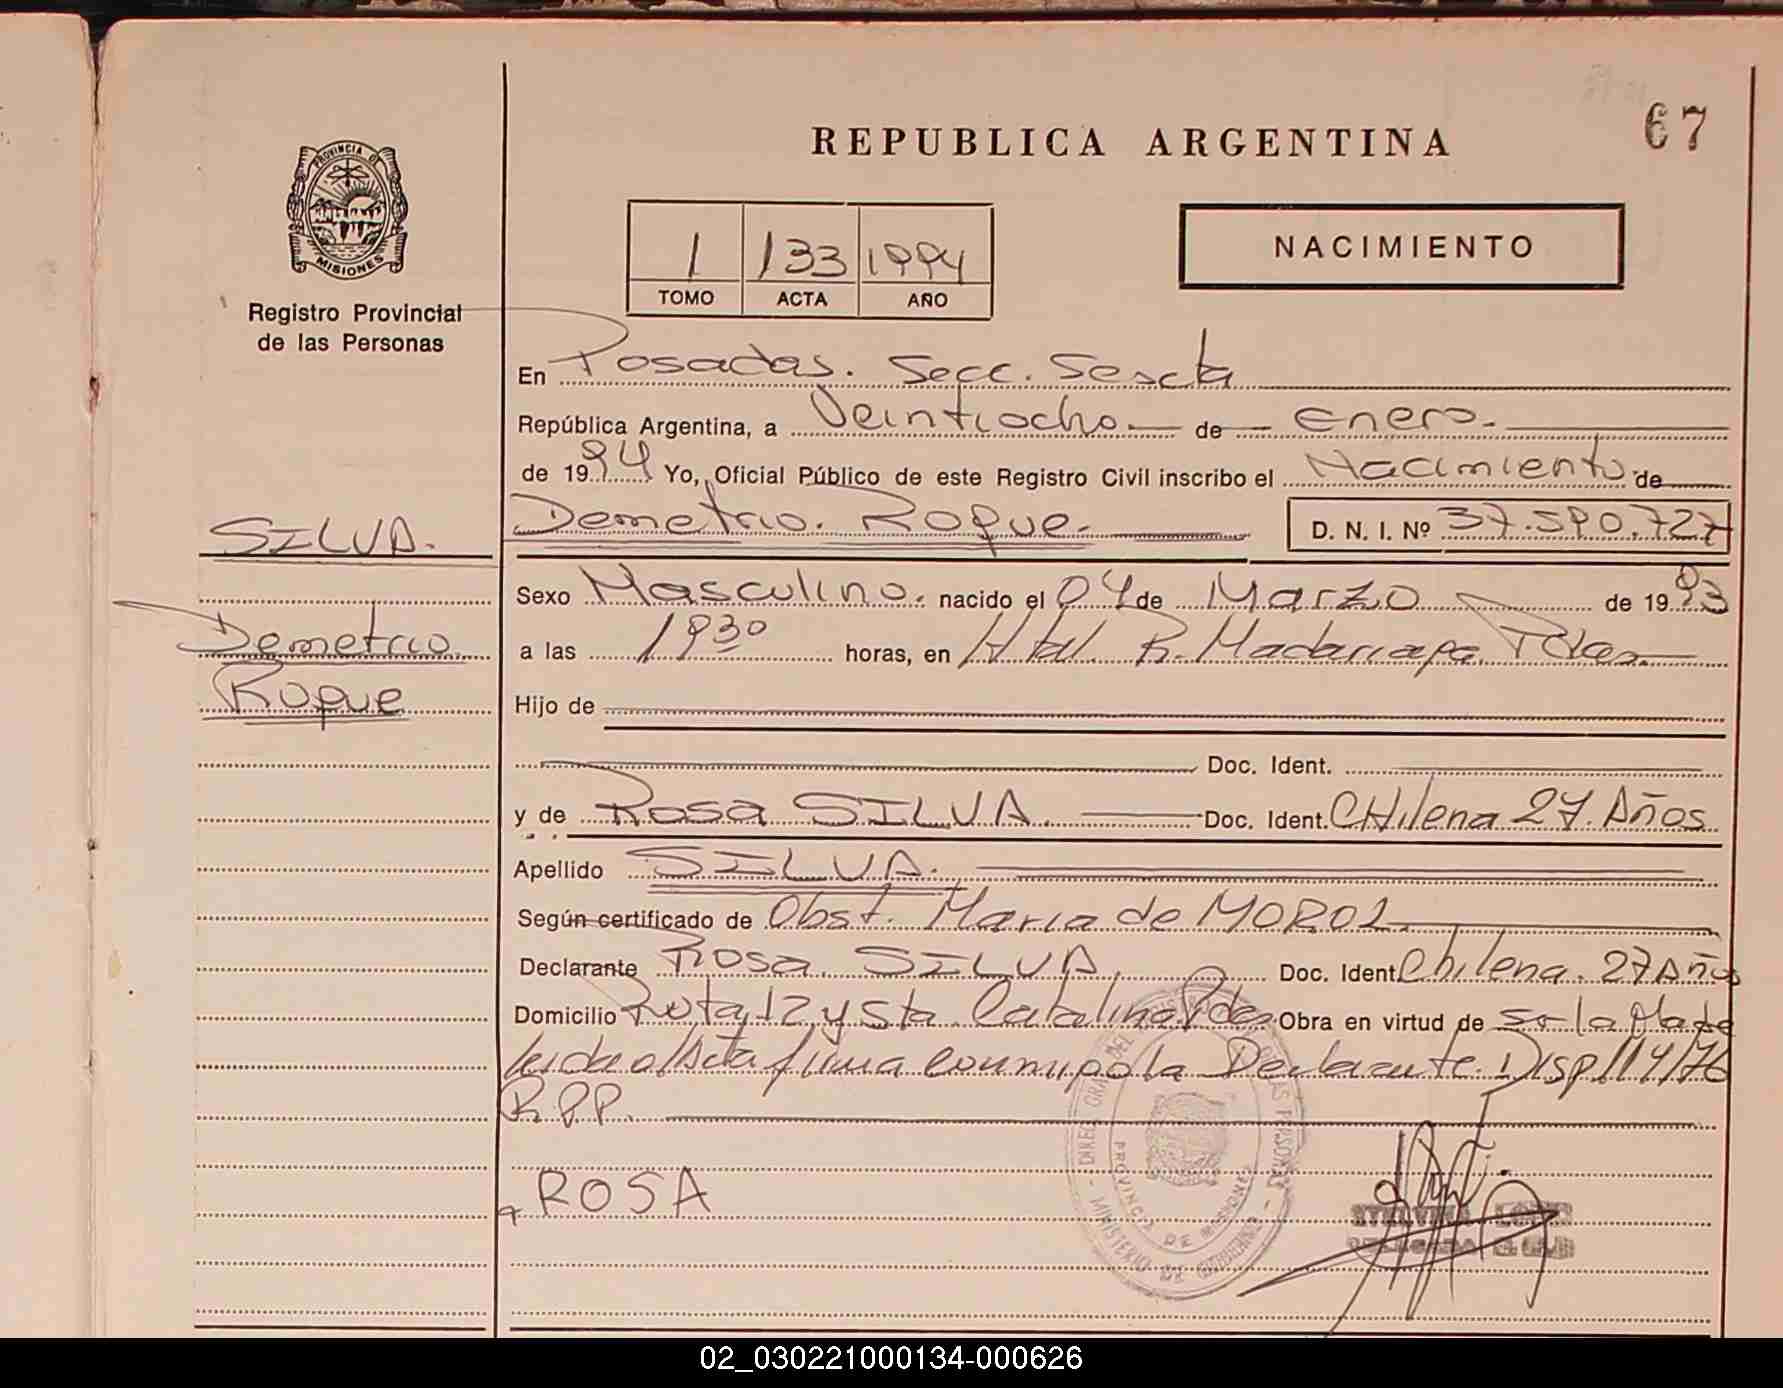 67
REPUBLICA ARGENTINA
PROVINCIA DE
MISIONES
Registro Provincial
de las Personas
1 133 1994
TOMO ACTA AÑO
NACIMIENTO
En Posadas. Secc. Sexta
República Argentina, a Veintiocho de Enero.
de 1994 Yo, Oficial Público de este Registro Civil inscribo el Nacimiento de
SILVA. Demetrio. Roque. D. N. I. Nº 37.590.727
Sexo Masculino. nacido el 04 de Marzo de 1993
Demetrio a las 1930 horas, en Htal R. Madariaga Pdas
Roque Hijo de
Doc. Ident.
y de Rosa SILVA. Doc. Ident. CHilena 27. Años
Apellido SILVA.
Según certificado de Obst. Maria de MOROZ
Declarante Rosa SILVA, Doc. Ident. Chilena. 27 Años
Domicilio Ruta 12 y Sta Catalina Pdas Obra en virtud de ser la Madre
leida el Acta firma conmigo la Declarante. Disp 114/76
R.P.P.
ROSA
PROVINCIA DE MISIONES
MINISTERIO DE GOBIERNO
02_030221000134-000626